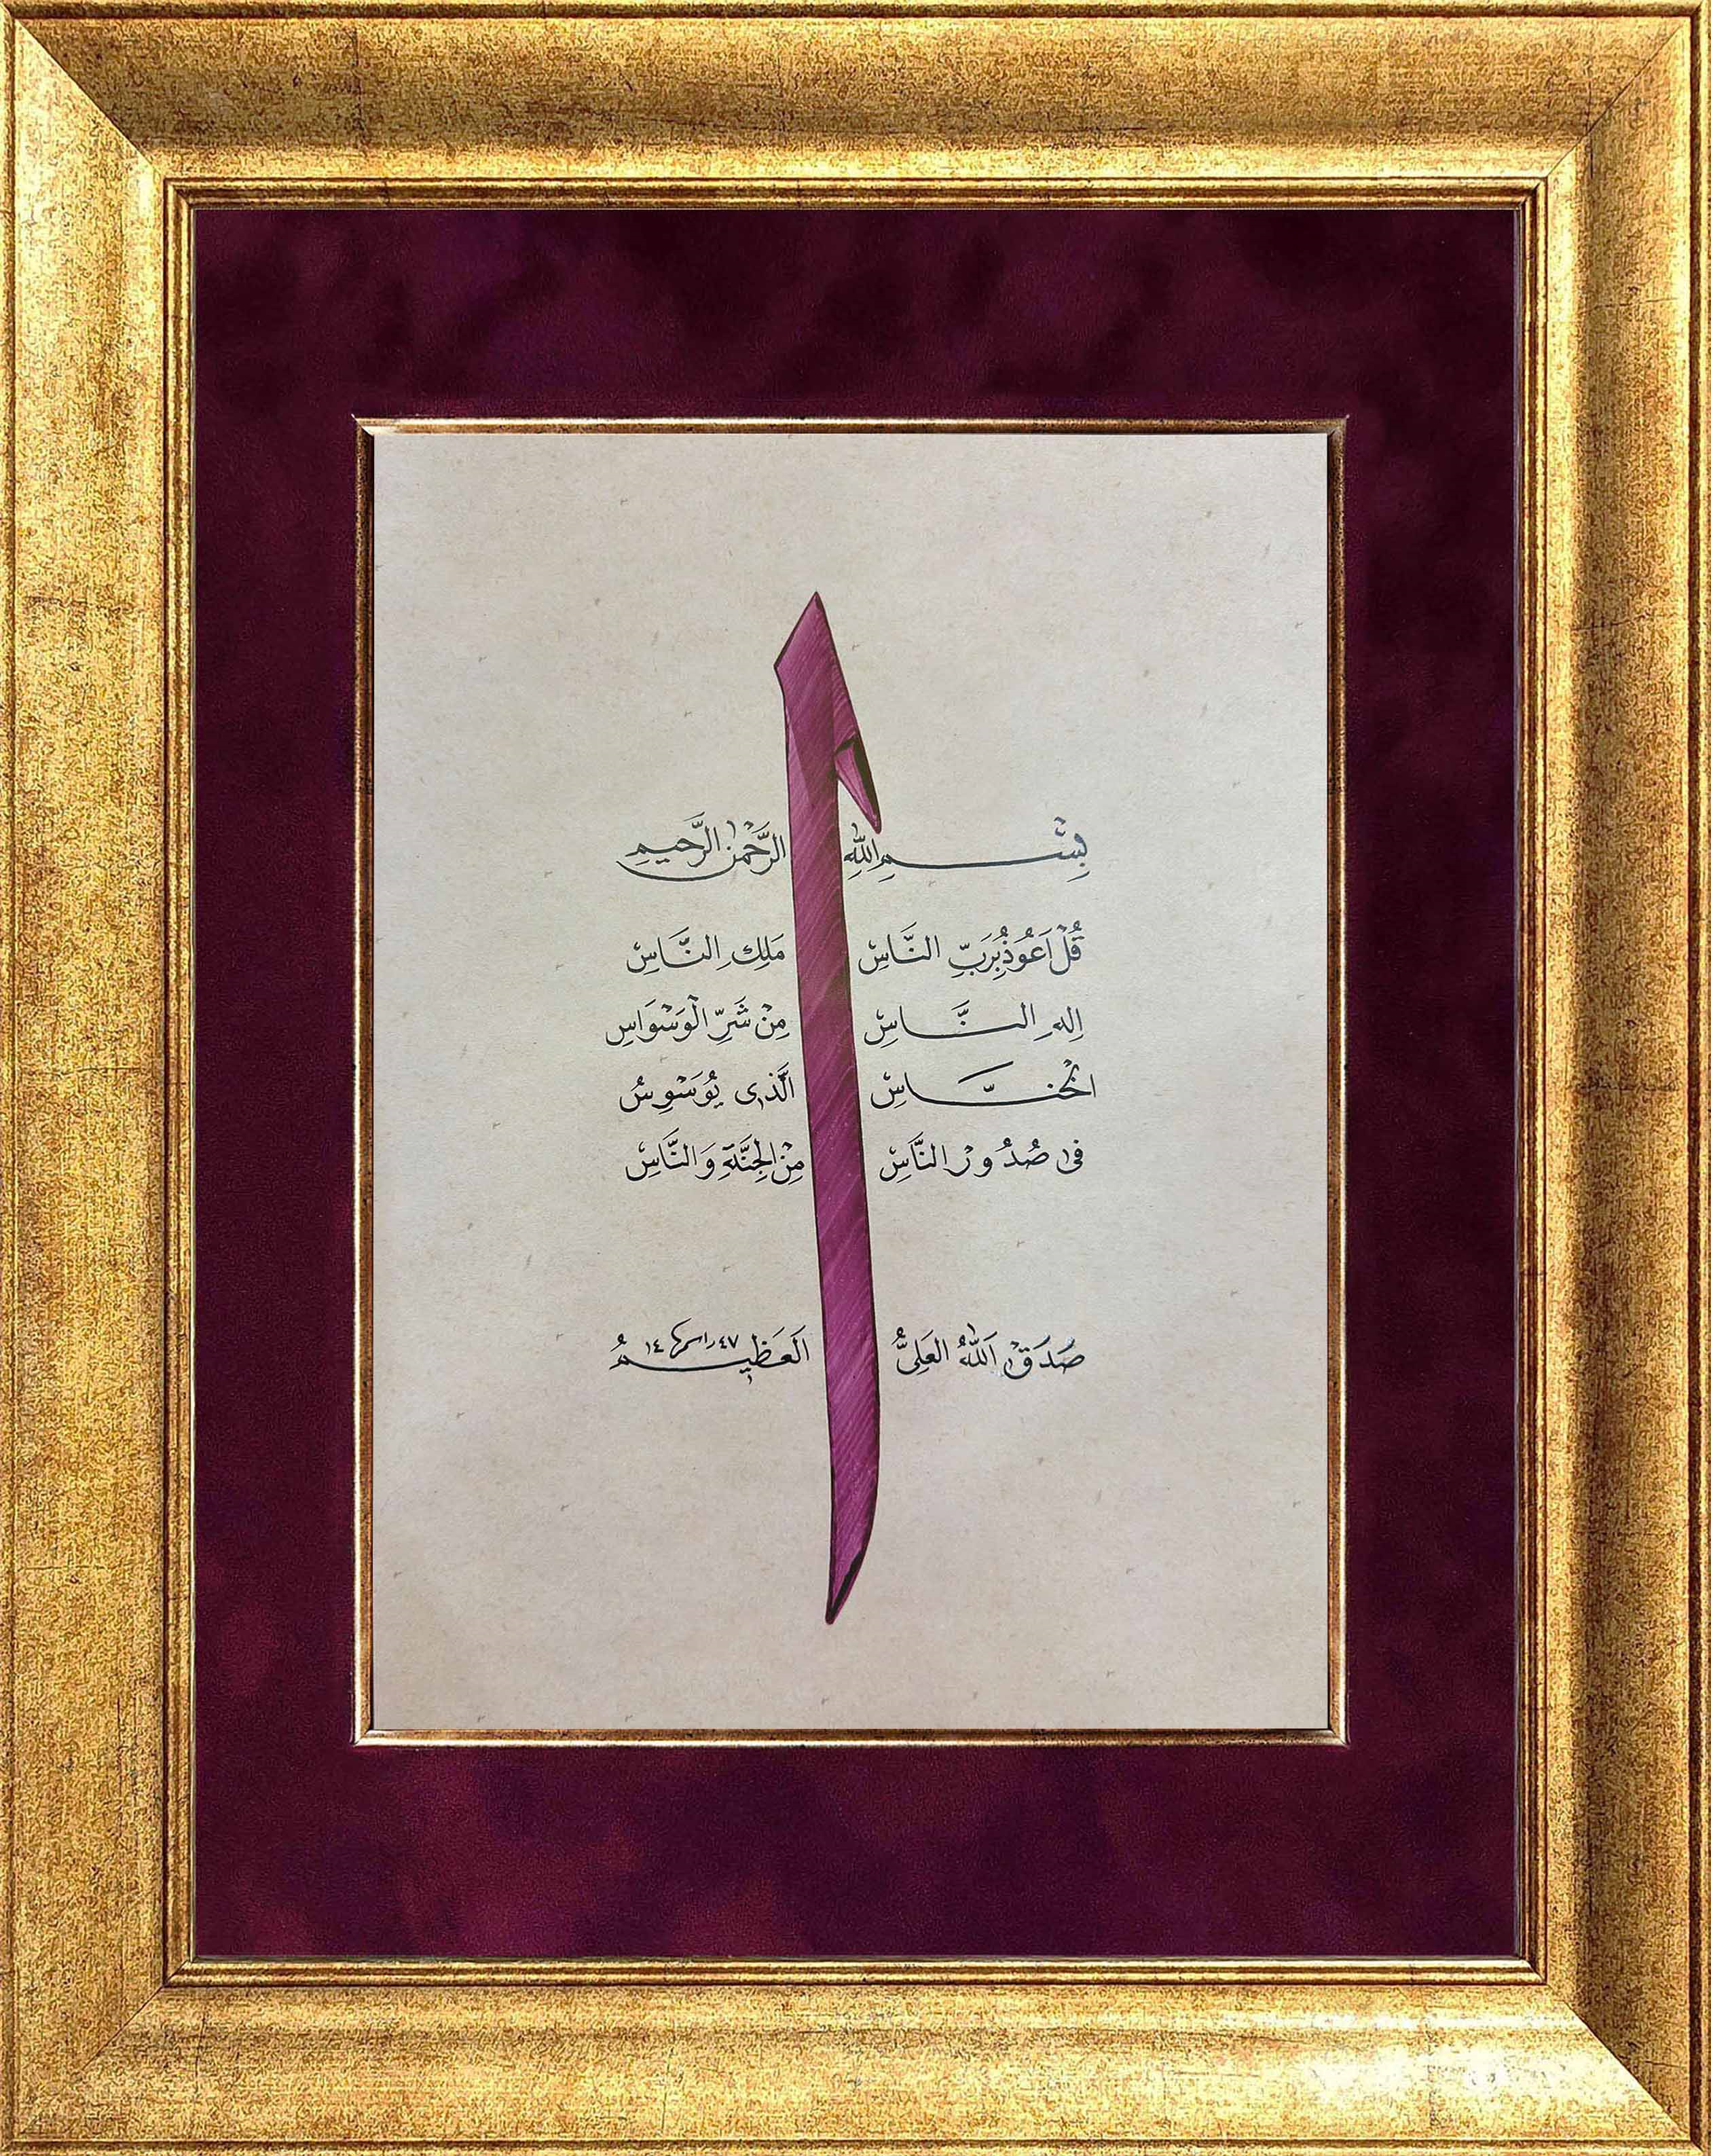 بِسْمِ اللّٰهِ الرَّحْمٰنِ الرَّحِيمِ
قُلْ اَعُوذُ بِرَبِّ النَّاسِ مَلِكِ النَّاسِ
اِلٰهِ النَّاسِ مِنْ شَرِّ الْوَسْوَاسِ
الْخَنَّاسِ الَّذِى يُوَسْوِسُ
فِى صُدُورِ النَّاسِ مِنَ الْجِنَّةِ وَالنَّاسِ
صَدَقَ اللّٰهُ الْعَلِىُّ الْعَظِيمُ